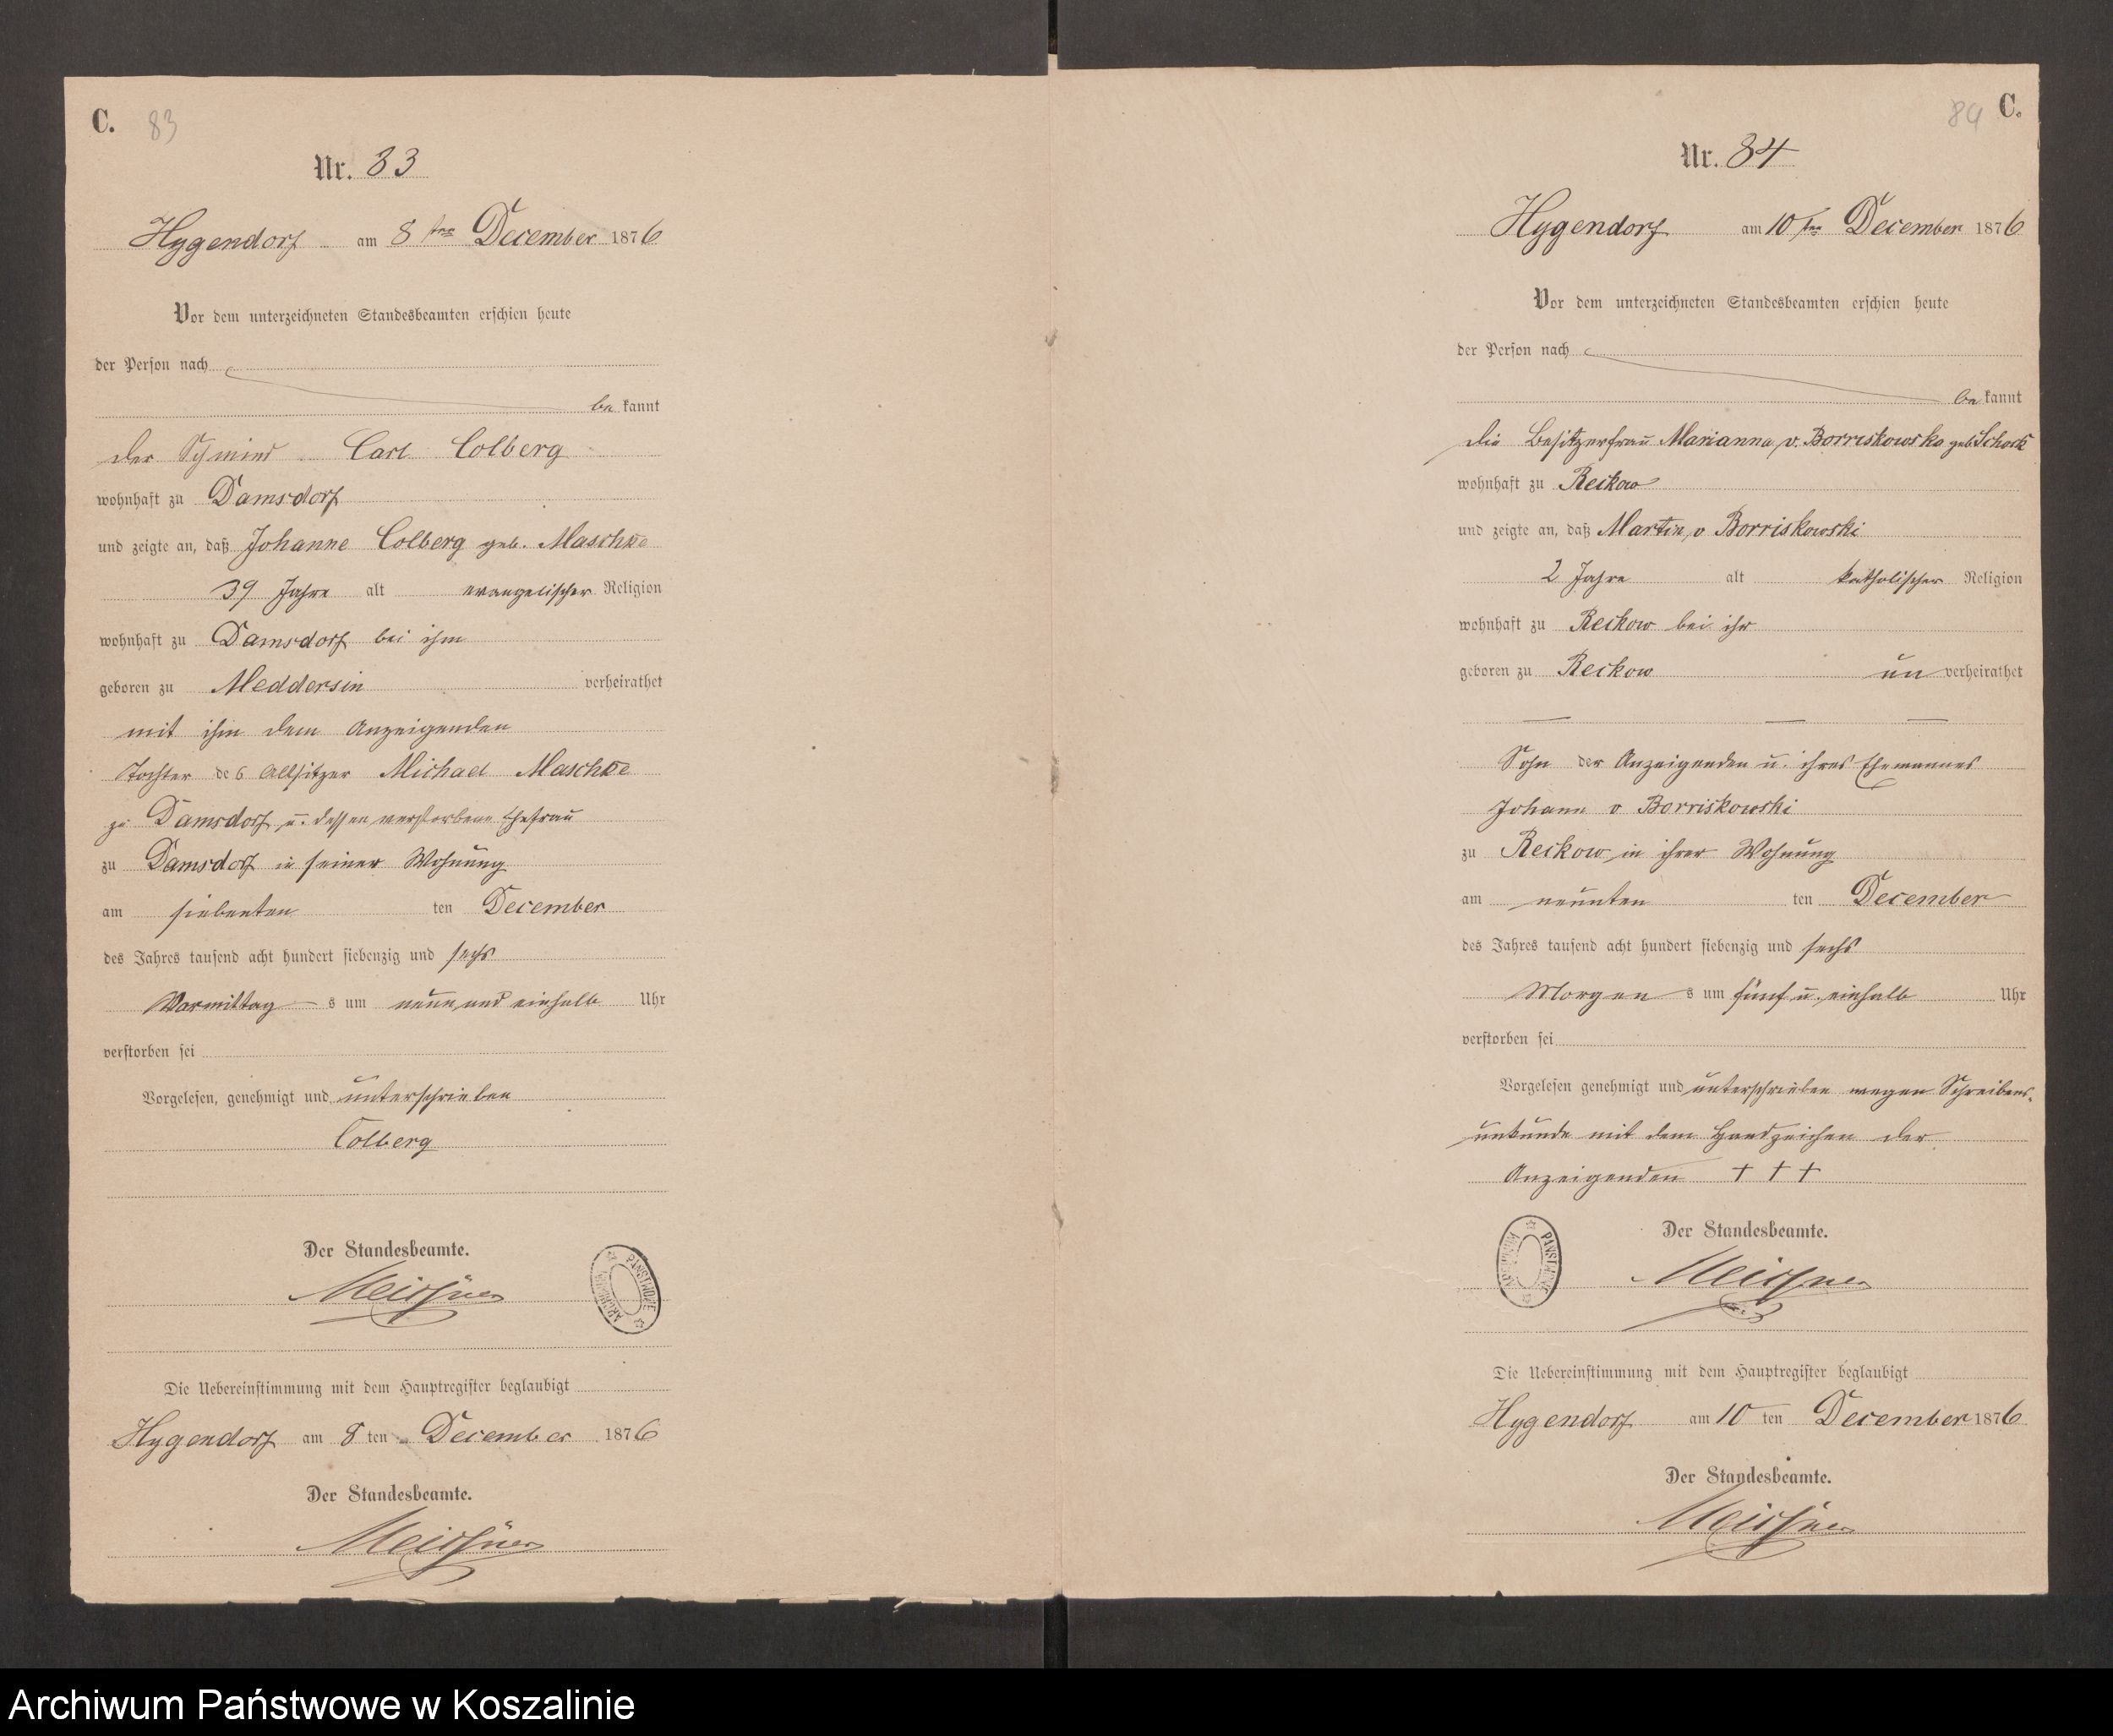 C. 83
Nr. 83
Hygendorf am 8 ten December 1876
Vor dem unterzeichneten Standesbeamten erschien heute
der Person nach
be kannt
der Schmied Carl Colberg
wohnhaft zu Damsdorf
und zeigte an, daß Johanne Colberg geb. Maschke
39 Jahre alt evangelischer Religion
wohnhaft zu Damsdorf bei ihm
geboren zu Meddersin verheirathet
mit ihm dem Anzeigenden
Tochter des Altsitzer Michael Maschke
zu Damsdorf u. dessen verstorbene Ehefrau
zu Damsdorf in seiner Wohnung
am siebenten ten December
des Jahres tausend acht hundert siebenzig und sechs
Vormittag s um neun und einhalb Uhr
verstorben sei
Vorgelesen, genehmigt und unterschrieben
Colberg
Der Standesbeamte.
Meissner
ARCHIWUM PAŃSTWOWE
Die Uebereinstimmung mit dem Hauptregister beglaubigt
Hygendorf am 8 ten December 1876
Der Standesbeamte.
Meissner
84 C.
Nr. 84
Hygendorf am 10 ten December 1876
Vor dem unterzeichneten Standesbeamten erschien heute
der Person nach
be kannt
die Besitzerfrau Marianna v. Borriskowska geb Schock
wohnhaft zu Reckow
und zeigte an, daß Martin v Borriskowski
2 Jahre alt katholischer Religion
wohnhaft zu Reckow bei ihr
geboren zu Reckow un verheirathet
Sohn der Anzeigenden u. ihres Ehemannes
Johann v Borriskowski
zu Reckow in ihrer Wohnung
am neunten ten December
des Jahres tausend acht hundert siebenzig und sechs
Morgen s um fünf u. einhalb Uhr
verstorben sei
Vorgelesen genehmigt und unterschrieben wegen Schreibens-
unkunde mit dem Handzeichen der
Anzeigenden + + +
Der Standesbeamte.
ARCHIWUM PAŃSTWOWE
Meissner
Die Uebereinstimmung mit dem Hauptregister beglaubigt
Hygendorf am 10 ten December 1876
Der Standesbeamte.
Meissner
Archiwum Państwowe w Koszalinie